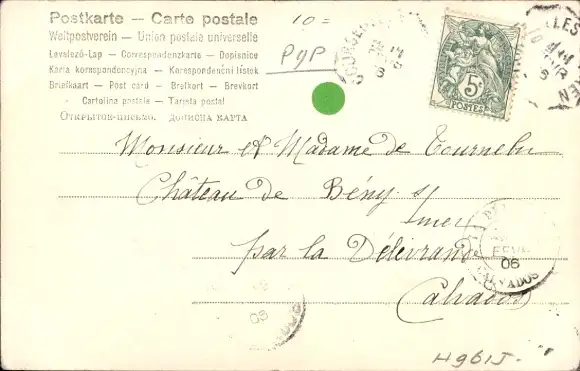 Postkarte – Carte postale
Weltpostverein – Union postale universelle
Levelező-Lap – Correspondenzkarte – Dopisnice
Karta korespondencyjna – Korespondenční lístek
Briefkaart – Post card – Brefkort – Brevkort
Cartolina postale – Tarjeta postal
Открытое письмо. дописна карта
10=
PYP
5c
POSTES
Monsieur et Madame de Tournebu
Château de Bény s/
mer
par la Délivrande
Calvados
FEVR
06
CALVADOS
H961J